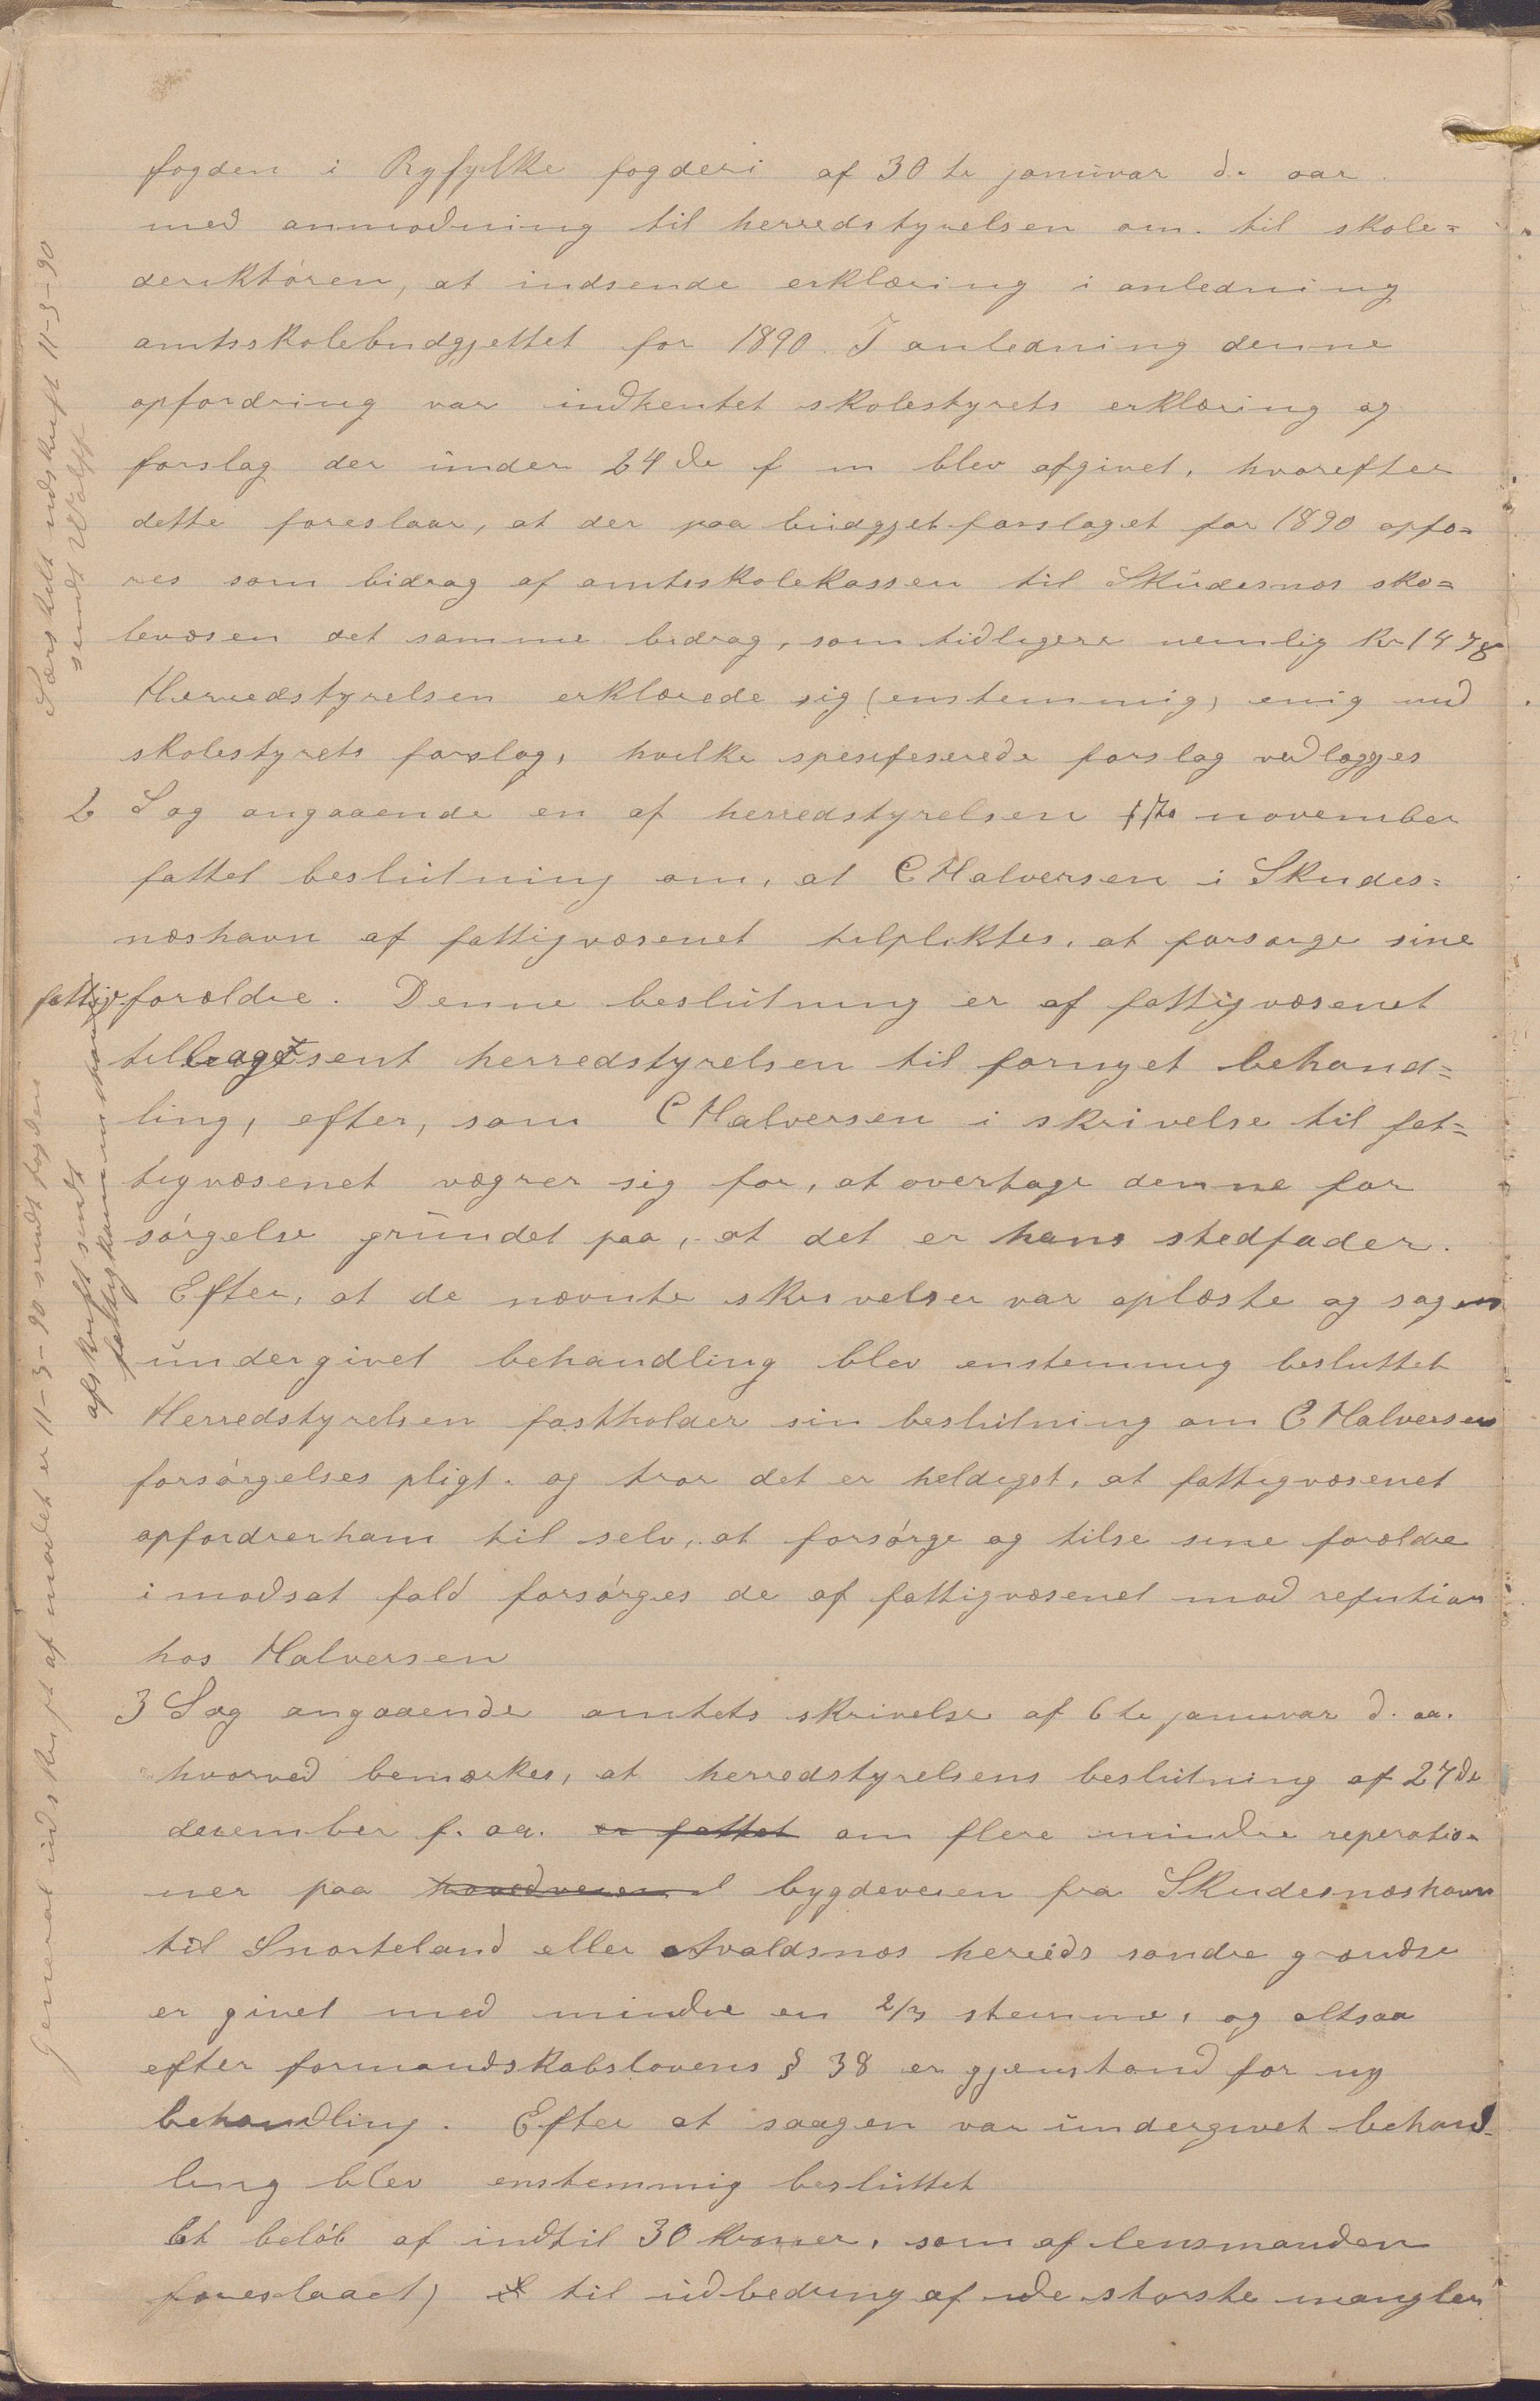 fogden i Ryfylke fogderi af 30te januvar d. aar.
med anmodning til herredstyrelsen om. til skole=
derektøren, at indsende erklæring i anledning
amtsskolebudgjettet for 1890. I anledning denne
opfordring var indhentet skolestyrets erklæring og
forslag der under 24de f m blev afgivet, hvorefter
dette foreslaar, at der paa budgjetforslaget for 1890 opfø=
res som bidrag af amtsskolekassen til Skudesnes sko=
levæsen det samme bidrag, som tidligere nemlig Kr 1478
Herredstyrelsen erklærede sig (enstemmig) enig med
skolestyrets forslag, hvilke spesifeserede forslag vedlægges
2 Sag angaaende en af herredstyrelsen november
fattet beslutning om, at C Halversen i Skudes=
næshavn af fattigvæsenet tilpliktes, at forsørge sine
fattige forældre. Denne beslutning er af fattigvæsenet
tilbagesent herredstyrelsen til fornyet behand=
ling, efter, som C Halversen i skrivelse til fat=
tigvæsenet vægrer sig for, at overtage denne for
sørgelse grundet paa, at det er hans stedfader.
Efter, at de nævnte skrivelser var oplæste og sagen
undergivet behandling blev enstemmig besluttet
Herredstyrelsen fastholder sin beslutning om C Halversen
forsørgelses pligt. og tror det er heldigst, at fattigvæsenet
opfordrer ham til selv, at forsørge og tilse sine forældre
i modsat fald forsørges de af fattigvæsenet mod refution
hos Halversen
3 Sag angaaende amtets skrivelse af 6te januvar d. aa.
hvorved bemærkes, at herredstyrelsens beslutning af 27de
december f. aa. er fattet om flere mindre reperatio=
ner paa hovedveien bygdeveien fra Skudesnæshavn
til Snorteland eller Avaldsnæs herreds søndre grændse
er givet med mindre en 2/3 stemme, og altsaa
efter formandskabslovens § 38 er gjenstand for ny
behandling. Efter at saagen var undergivet behand=
ling blev enstemmig besluttet
Et beløb af indtil 30 kroner, som af lensmanden
foreslaaet) til udbedring af de største mangler
Særskilt udskrift 11-3-90
sendt
afskrift sendt
fattigkommissionen
General udskrift af mødet er 11-3-90 sendt fogden